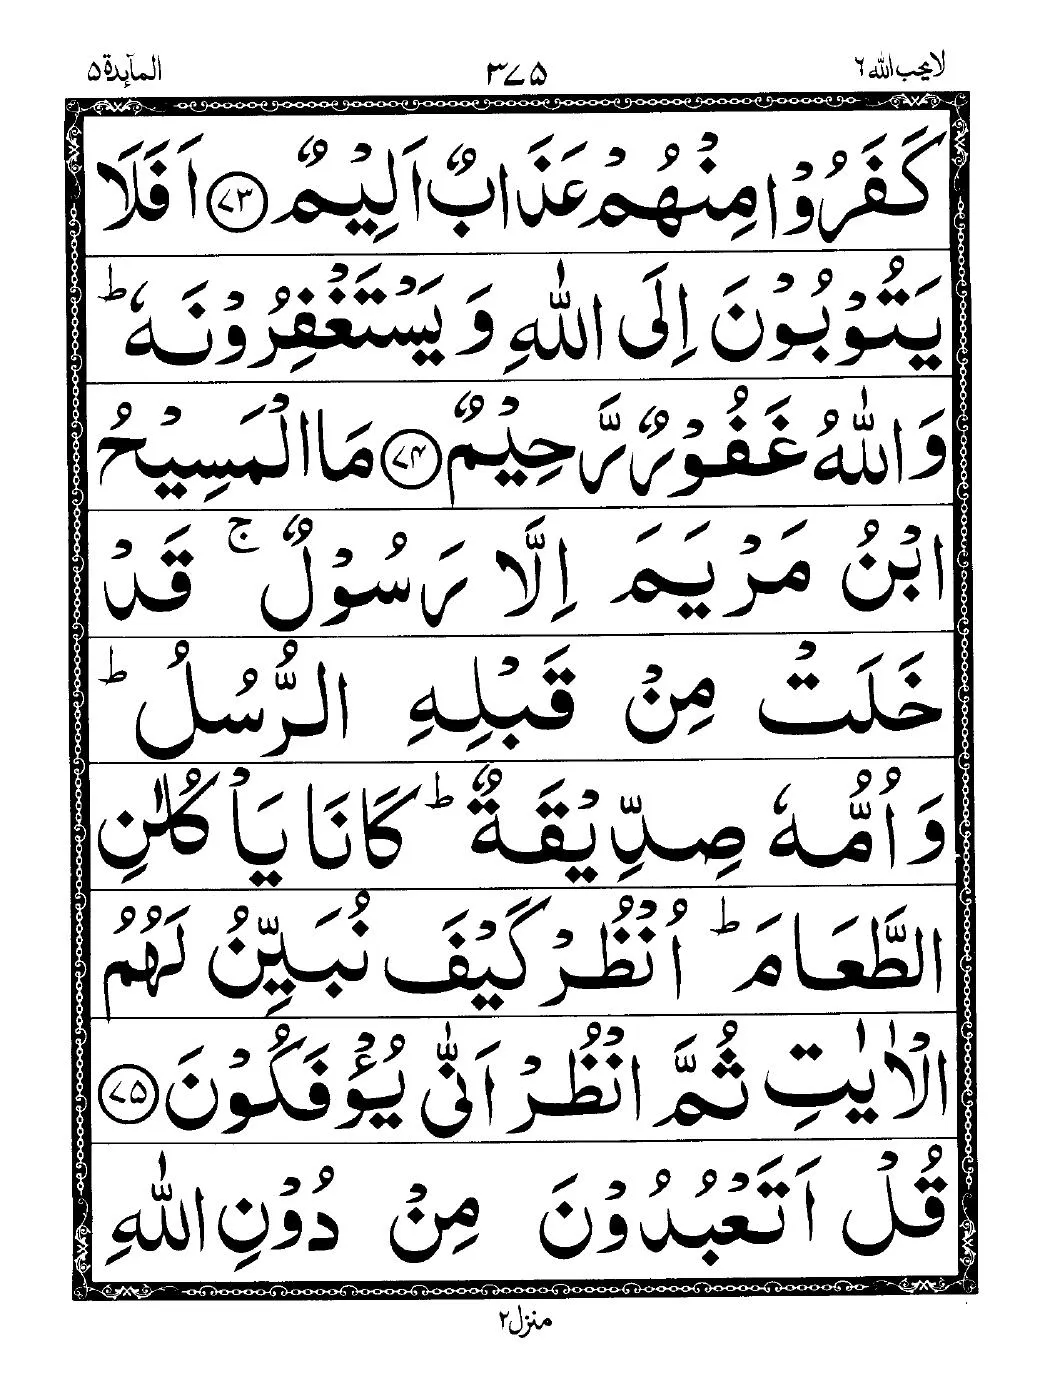 لا يحب الله ٦
٣٧٥
المآىِٕدة ٥
كَفَرُوْا مِنْهُمْ عَذَابٌ اَلِيْمٌ ﴿٧٣﴾ اَفَلَا
يَتُوْبُوْنَ اِلَى اللّٰهِ وَيَسْتَغْفِرُوْنَهٗ ؕ
وَاللّٰهُ غَفُوْرٌ رَّحِيْمٌ ﴿٧٤﴾ مَا الْمَسِيْحُ
ابْنُ مَرْيَمَ اِلَّا رَسُوْلٌ ۚ قَدْ
خَلَتْ مِنْ قَبْلِهِ الرُّسُلُ ؕ
وَاُمُّهٗ صِدِّيْقَةٌ ؕ كَانَا يَاْكُلٰنِ
الطَّعَامَ ؕ اُنْظُرْ كَيْفَ نُبَيِّنُ لَهُمُ
الْاٰيٰتِ ثُمَّ انْظُرْ اَنّٰى يُؤْفَكُوْنَ ﴿٧٥﴾
قُلْ اَتَعْبُدُوْنَ مِنْ دُوْنِ اللّٰهِ
منزل ٢